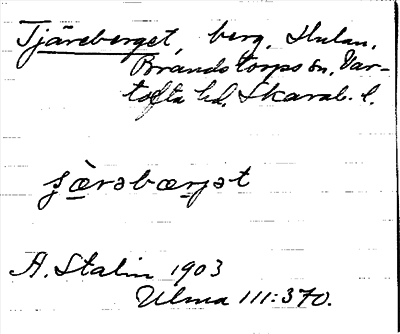 Tjäreberget, berg, Hulan,
Brandstorps sn, Var-
tofta hd, Skarab. l.
ʂæ̀rəbærjət
A. Stalin 1903
Ulma 111:370.